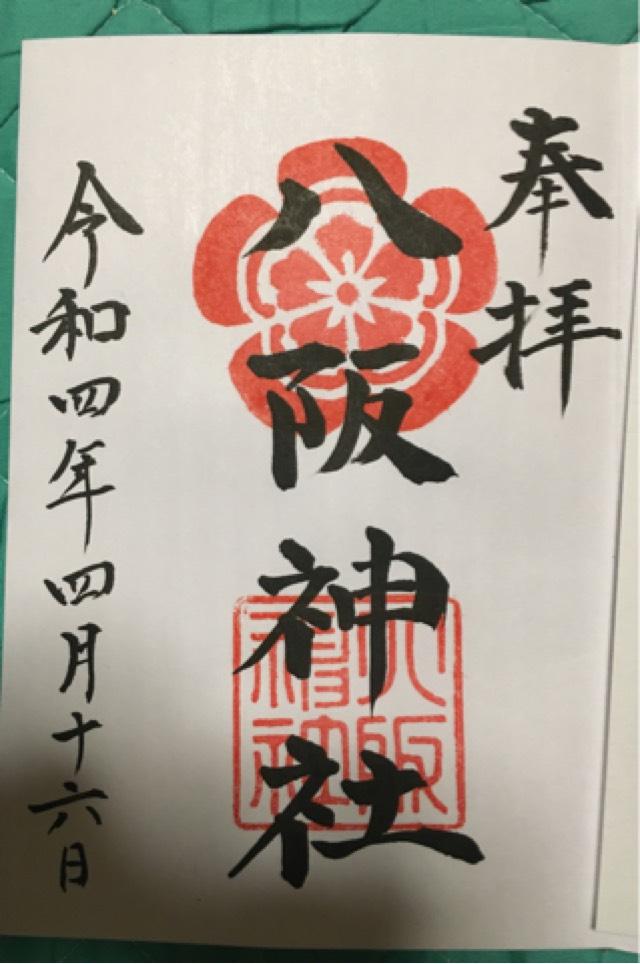 奉拝
八阪神社
八阪神社
令和四年四月十六日